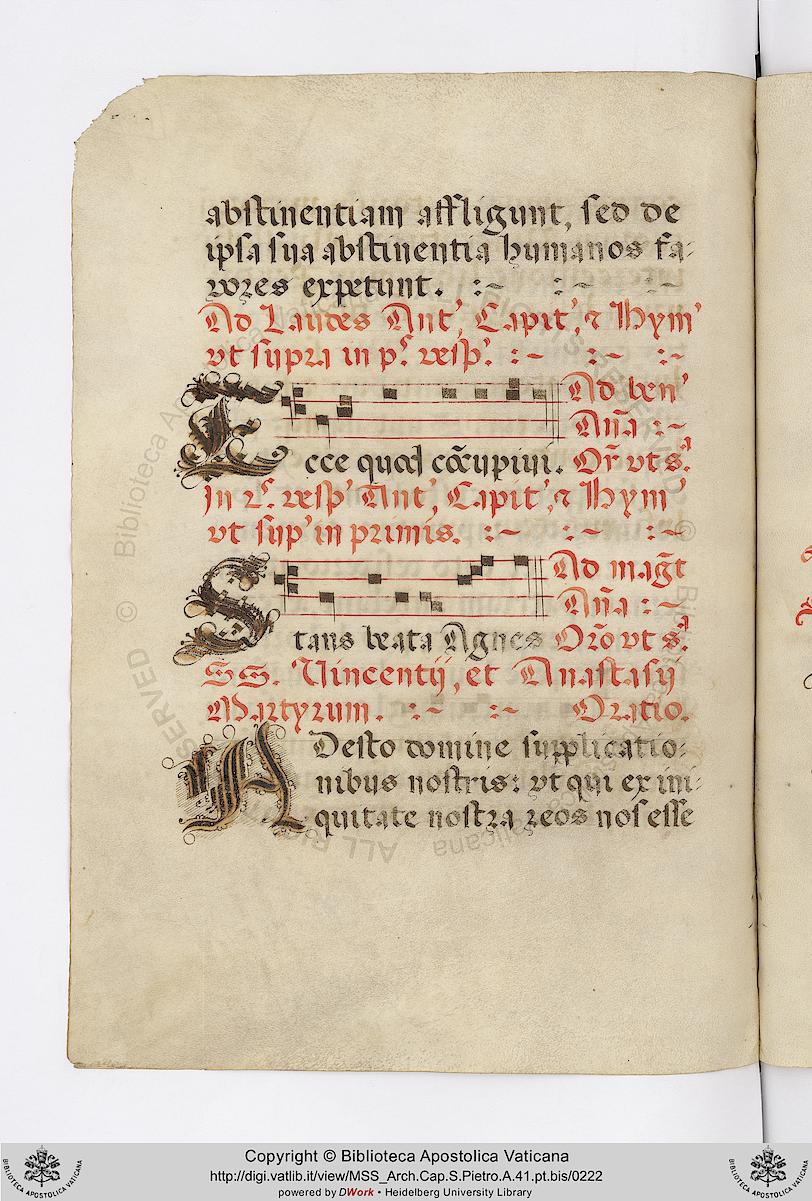 abstinentiam affligunt, sed de
ipsa sua abstinentia humanos fa-
vores expetunt. :~ :~ :~
Ad Laudes Ant', Capit', & Hym'
vt supra in p.s vesp'. :~ :~ :~
Ad ben'
Aña :~
Ecce quod cõcupiui. Or̃ vt s.ª
In 2.s vesp' Ant', Capit', & Hym'
vt sup' in primis. :~ :~ :~
Ad mag̃t
Aña :~
Stans beata Agnes Orõ vt s.ª
SS. Vincentij, et Anastasij
Martyrum. :~ :~ Oratio.
ADesto domine supplicatio-
nibus nostris: vt qui ex ini-
quitate nostra reos nos esse
Copyright © Biblioteca Apostolica Vaticana
http://digi.vatlib.it/view/MSS_Arch.Cap.S.Pietro.A.41.pt.bis/0222
powered by DWork • Heidelberg University Library